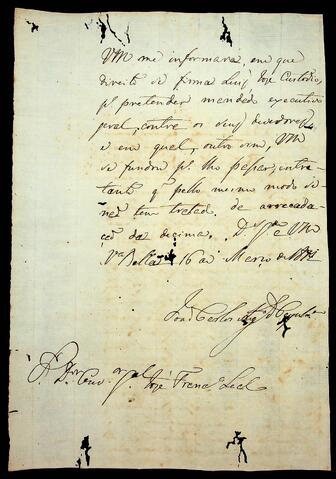 VM me informará, em que
direito se firma Luiz Joze Custodio,
pª pretender mandado executivo
geral, contra os seus devedores,
e em qual, outro sim, VM
se fundou pª lho passar, entre-
tanto q̃ pello mesmo modo se
não tem tratado, de arrecada-
ção da decima. D.s G.e a VM
Vª Bella 16 de Março de
João Carlos
Sr. Dr. Ouv.or g.al Joze Franc.o Leal